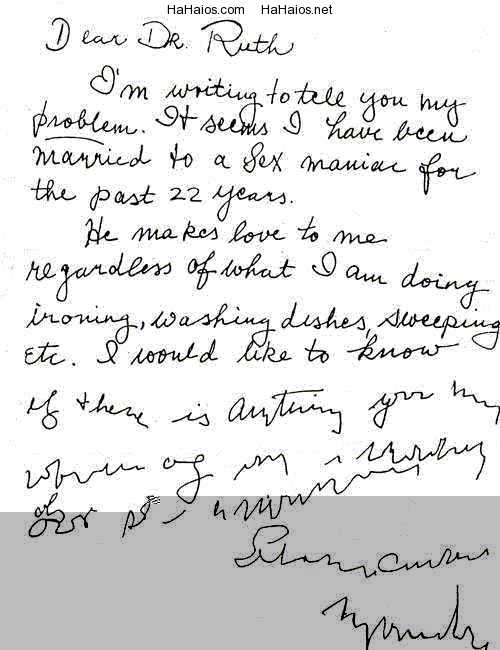 HaHaios.com HaHaios.net
Dear Dr. Ruth
I'm writing to tell you my
problem. It seems I have been
married to a sex maniac for
the past 22 years.
He makes love to me
regardless of what I am doing
ironing, washing dishes, sweeping
etc. I would like to know
if there is anything you